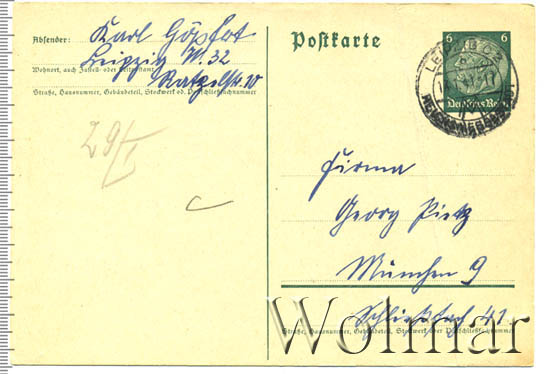 Absender: Karl Göpfert
Leipzig W. 32
Wohnort, auch Zustell- oder Leitpostamt
Ratzelstr. 10
Straße, Hausnummer, Gebäudeteil, Stockwerk od. Postschließfachnummer
29/I
Postkarte
6 6
Deutsches Reich
LEIPZIG C 2
REICHSMESSESTADT
Firma
Georg Pietz
München 9
Schließfach 41
Straße, Hausnummer, Gebäudeteil, Stockwerk oder Postschließfachnummer
Wolmar